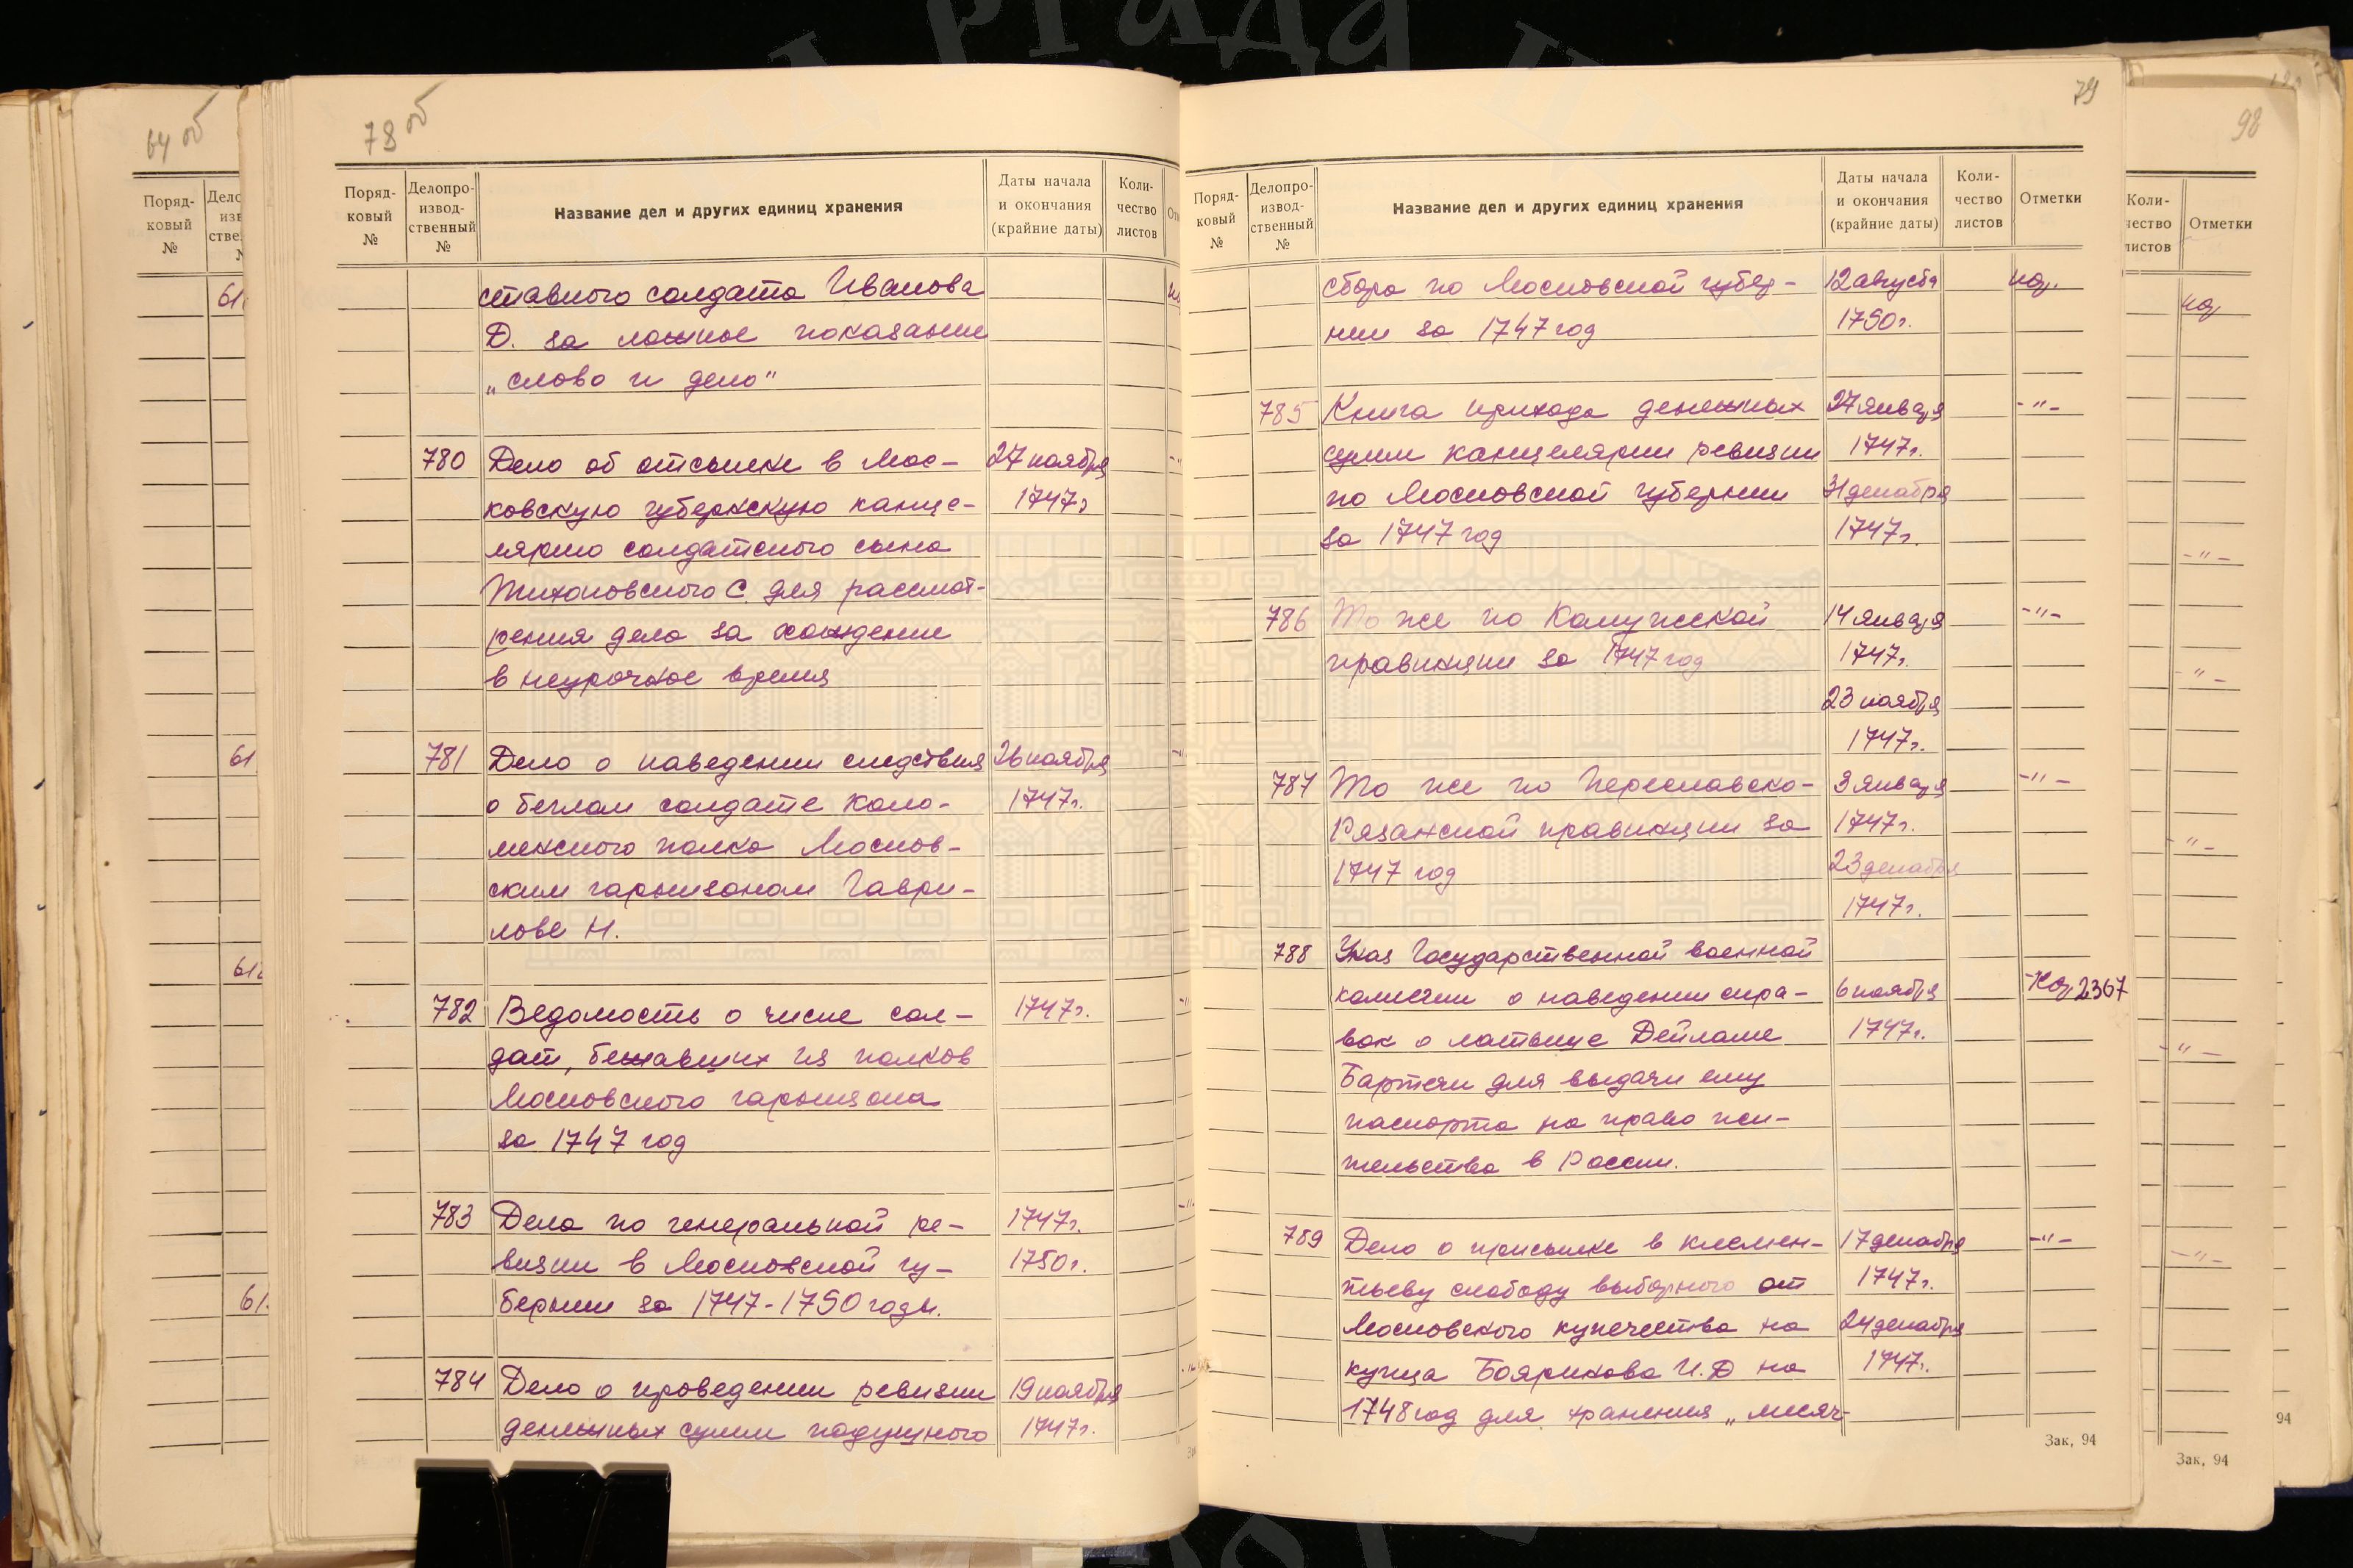 78 об
Поряд-
ковый
№
Делопро-
извод-
ственный
№
Название дел и других единиц хранения
Даты начала
и окончания
(крайние даты)
Коли-
чество
листов
ставного солдата Иванова
Д. за ложное показание
„слово и дело"
780 Дело об отсылке в Мос- 27 ноября
ковскую губернскую канце- 1747г
лярию солдатского сына
Тихоновского С. для рассмот-
рения дела за хождение
в неурочное время
781 Дело о наведении следствия 26 ноября
о беглом солдате Коло- 1747г.
менского полка Москов-
ским гарнизоном Гаври-
лове Н.
782 Ведомость о числе сол- 1747г.
дат, бежавших из полков
Московского гарнизона
за 1747 год
783 Дела по генеральной ре- 1747г.
визии в Московской гу- 1750г.
бернии за 1747-1750 годы.
784 Дело о проведении ревизии 19 ноября
денежных сумм подушного 1747г.
79
Поряд-
ковый
№
Делопро-
извод-
ственный
№
Название дел и других единиц хранения
Даты начала
и окончания
(крайние даты)
Коли-
чество
листов
Отметки
сбора по Московской губер- 12 августа
нии за 1747 год 1750г.
785 Книга прихода денежных 27 января -"-
сумм канцелярии ревизии 1747г.
по Московской губернии 31 декабря
за 1747 год 1747г.
786 То же по Калужской 14 января -"-
провинции за 1747 год 1747г.
23 ноября
1747г.
787 То же по Переславско- 3 января -"-
Рязанской провинции за 1747г.
1747 год 23 декабря
1747г.
788 Указ Государственной военной
коллегии о наведении спра- 6 ноября 2367
вок о латынце Дейламе 1747г.
Бартечи для выдачи ему
паспорта на право жи-
тельства в России.
789 Дело о присылке в клемен- 17 декабря -"-
тьеву слободу выборного от 1747г.
Московского купечества на 24 декабря
купца Бояринова И.Д на 1747г.
1748 год для хранения „месяч-
Зак, 94
64 об
Поряд-
ковый
№
98
Коли-
чество
листов
Отметки
Зак, 94
94